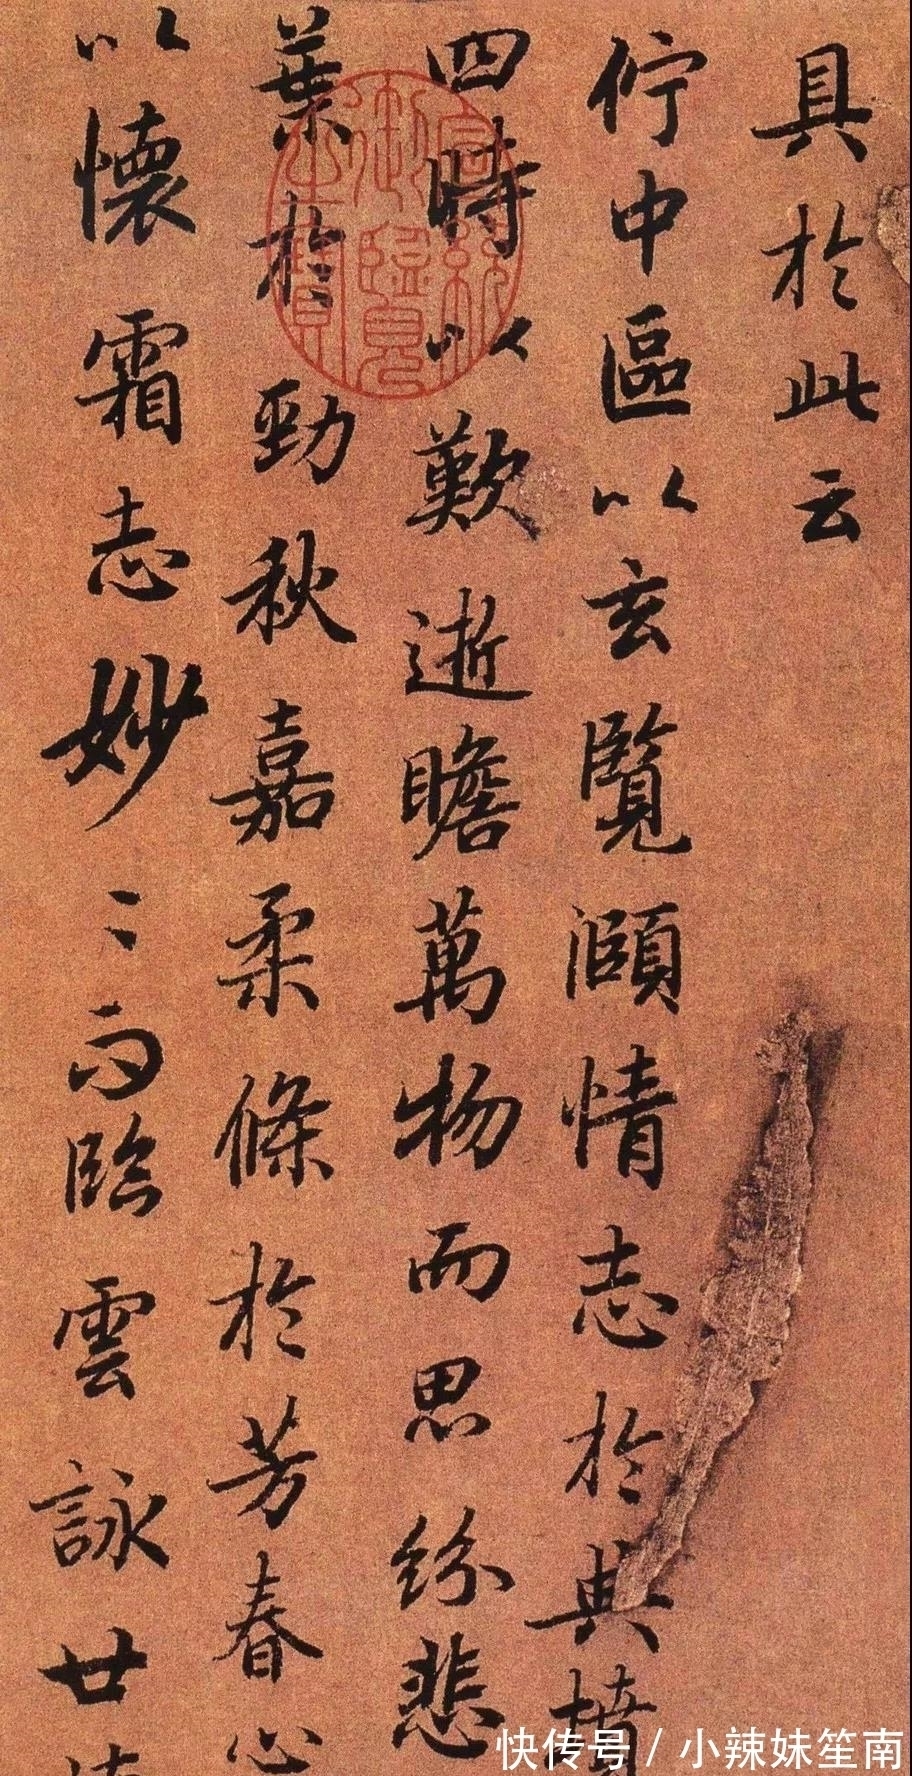 具於此云
佇中區以玄覽頤情志於典墳
四時以歎逝瞻萬物而思紛悲
葉於勁秋嘉柔條於芳春心
以懷霜志妙〻而臨雲詠廿
宣統御覽之寶
快传号 / 小辣妹笙南